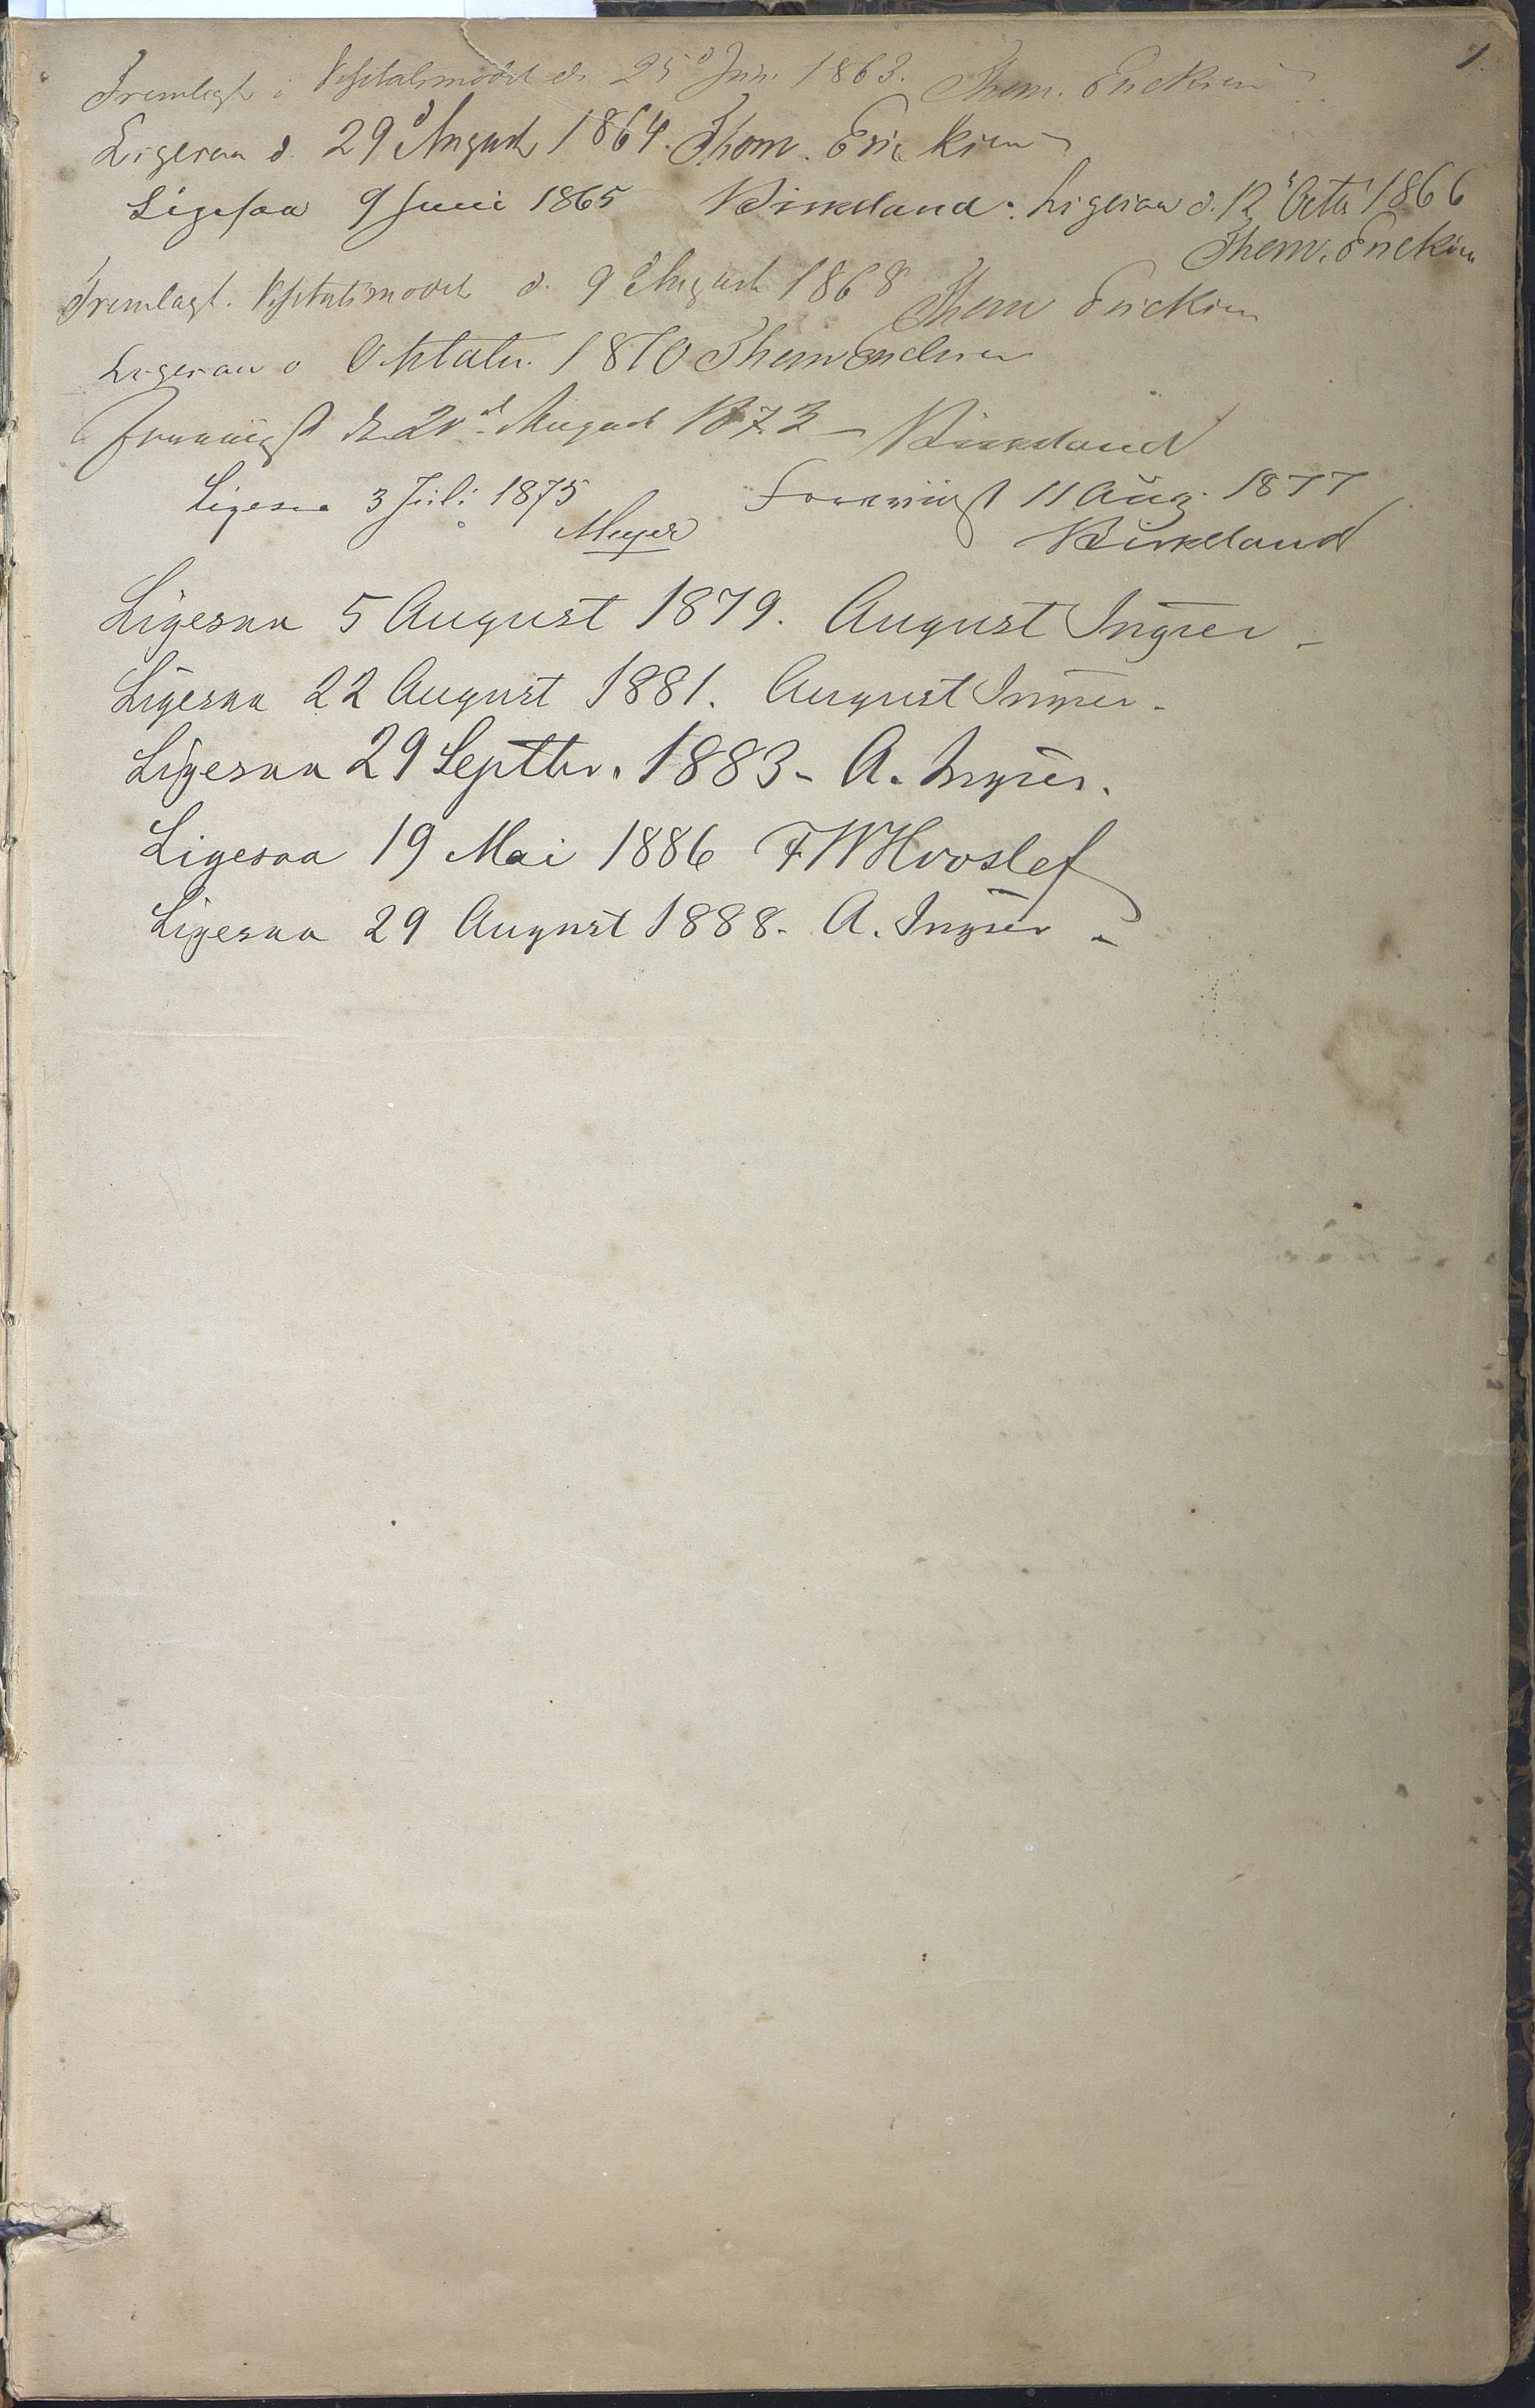 1.
Fremlagt i Visitatsmødet d. 25d Juni 1863. Thom. Ericksen
Ligesaa d. 29d August 1864. Thom. Ericksen
Ligesaa 9 Juni 1865 Birkeland. Ligesaa d. 12 Octb 1866
Thom. Ericksen
Fremlagt. Visitatsmødet d. 9d August 1868 Thom Ericksen
Ligesaa Oktober 1870 Thom Ericksen
Fremviist August 1873 - Birkeland
Ligesaa 3 Juli 1875 Foreviist 11 Aug. 1877
Meyer Birkeland
Ligesaa 5 August 1879. August Ingier -
Ligesaa 22 August 1881. August Ingier -
Ligesaa 29 Septbr. 1883 - A. Ingier.
Ligesaa 19 Mai 1886 FWHvoslef
Ligesaa 29 August 1888 - A. Ingier -